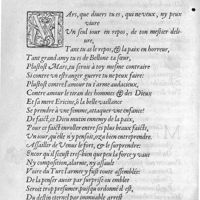 MArs, que diuers tu es, qui ne veux, ny peux
viure
Vn seul iour en repos, de ton mestier deli-
ure,
Tant tu as le repos, & la paix en horreur,
Tant grand amy tu es de Bellone ta sœur,
Plustost Mars, tu serois à toy mesme contraire
Si contre vn estranger guerre tu ne peux faire:
Plustost contre l'amour tu t'arme audacieux,
Contre amour le tiran des hommes & des Dieux
Et sa mere Ericine, à la belle vaillance
Se prendre à vne femme, attaquer vne enfance!
Du faict, ce Dieu mutin ennemy de la paix,
Pour ce faict enroller entre ses plus beaux faicts,
Vn iour, qu'elle n'y pensoit, eza bien entreprendre
Assaillir de Venus le fort, & le surprendre:
Encor qu'il sceust tresbien que peu la force y vaut
Ny composition, alarme, ny assaut
Voire du Turc l'armee y fust toute assemblée:
De la penser auoir par surprise ou emblee
Seroit trop presumer, puis qu'ordonné il est,
Du destin eternel par immuable arrest